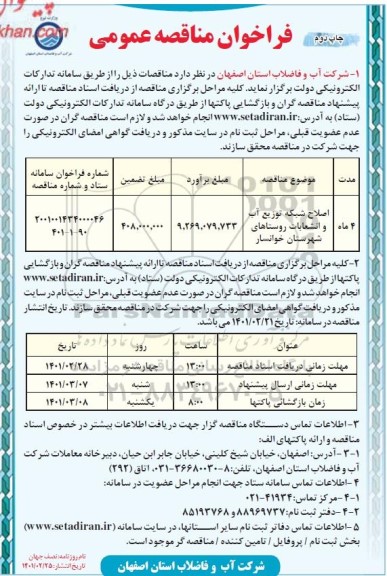 چاپ دوم
فراخوان مناقصه عمومی
۱- شرکت آب و فاضلاب استان اصفهان در نظر دارد مناقصات ذیل را از طریق سامانه تدارکات
الکترونیکی دولت برگزار نماید. کلیه مراحل برگزاری مناقصه از دریافت اسناد مناقصه تا ارائه
پیشنهاد مناقصه گران و بازگشایی پاکتها از طریق درگاه سامانه تدارکات الکترونیکی دولت
(ستاد) به آدرس: www.setadiran.ir انجام خواهد شد و لازم است مناقصه گران در صورت
عدم عضویت قبلی، مراحل ثبت نام در سایت مذکور و دریافت گواهی امضای الکترونیکی را
جهت شرکت در مناقصه محقق سازند.
مدت | موضوع مناقصه | مبلغ برآورد | مبلغ تضمین | شماره فراخوان سامانه ستاد و شماره مناقصه
۴ ماه | اصلاح شبکه توزیع آب و انشعابات روستاهای شهرستان خوانسار | ۹,۲۶۹,۰۷۹,۷۳۳ | ۴۰۸,۰۰۰,۰۰۰ | ۲۰۰۱۰۰۱۴۳۴۰۰۰۰۴۶ ۴۰۱-۱-۹۰
۲- کلیه مراحل برگزاری مناقصه از دریافت اسناد مناقصه تا ارائه پیشنهاد مناقصه گران و بازگشایی
پاکتها از طریق درگاه سامانه تدارکات الکترونیکی دولت (ستاد) به آدرس: www.setadiran.ir
انجام خواهد شد و لازم است مناقصه گران در صورت عدم عضویت قبلی، مراحل ثبت نام در سایت
مذکور و دریافت گواهی امضای الکترونیکی را جهت شرکت در مناقصه محقق سازند. تاریخ انتشار
مناقصه از تاریخ: ۱۴۰۱/۰۲/۲۱ می باشد.
عنوان | ساعت | روز | تاریخ
مهلت زمانی دریافت اسناد مناقصه | ۱۳:۰۰ | چهارشنبه | ۱۴۰۱/۰۲/۲۸
مهلت زمانی ارسال پیشنهاد | ۱۳:۰۰ | شنبه | ۱۴۰۱/۰۳/۰۷
زمان بازگشائی پاکتها | ۸:۰۰ | یکشنبه | ۱۴۰۱/۰۳/۰۸
۳- اطلاعات تماس دستگاه مناقصه گزار جهت دریافت اطلاعات بیشتر در خصوص اسناد
مناقصه و ارائه پاکتهای الف:
۳-۱- آدرس: اصفهان، خیابان شیخ کلینی، خیابان جابر ابن حیان، دبیرخانه معاملات شرکت
آب و فاضلاب استان اصفهان، تلفن: ۸-۳۶۶۸۰۰۳۰-۰۳۱ اتاق (۲۹۲)
۴- اطلاعات تماس سامانه ستاد جهت انجام مراحل عضویت در سامانه:
۴-۱- مرکز تماس: ۴۱۹۳۴-۰۲۱
۴-۲- دفتر ثبت نام: ۸۸۹۶۹۷۳۷ و ۸۵۱۹۳۷۶۸
۵- اطلاعات تماس دفاتر ثبت نام سایر استانها، در سایت سامانه (www.setadiran.ir)
بخش ثبت نام / پروفایل / تامین کننده / مناقصه گر موجود است.
شرکت آب و فاضلاب استان اصفهان
نام روزنامه: نصف جهان
تاریخ انتشار: ۱۴۰۱/۰۲/۲۵